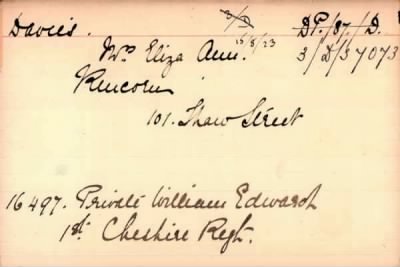 Davies.
DP./87./D.
15/8/23
3/D/37073
Mrs Eliza Ann.
Runcorn
101. Shaw Street
16497. Private William Edward
1st. Cheshire Regt.